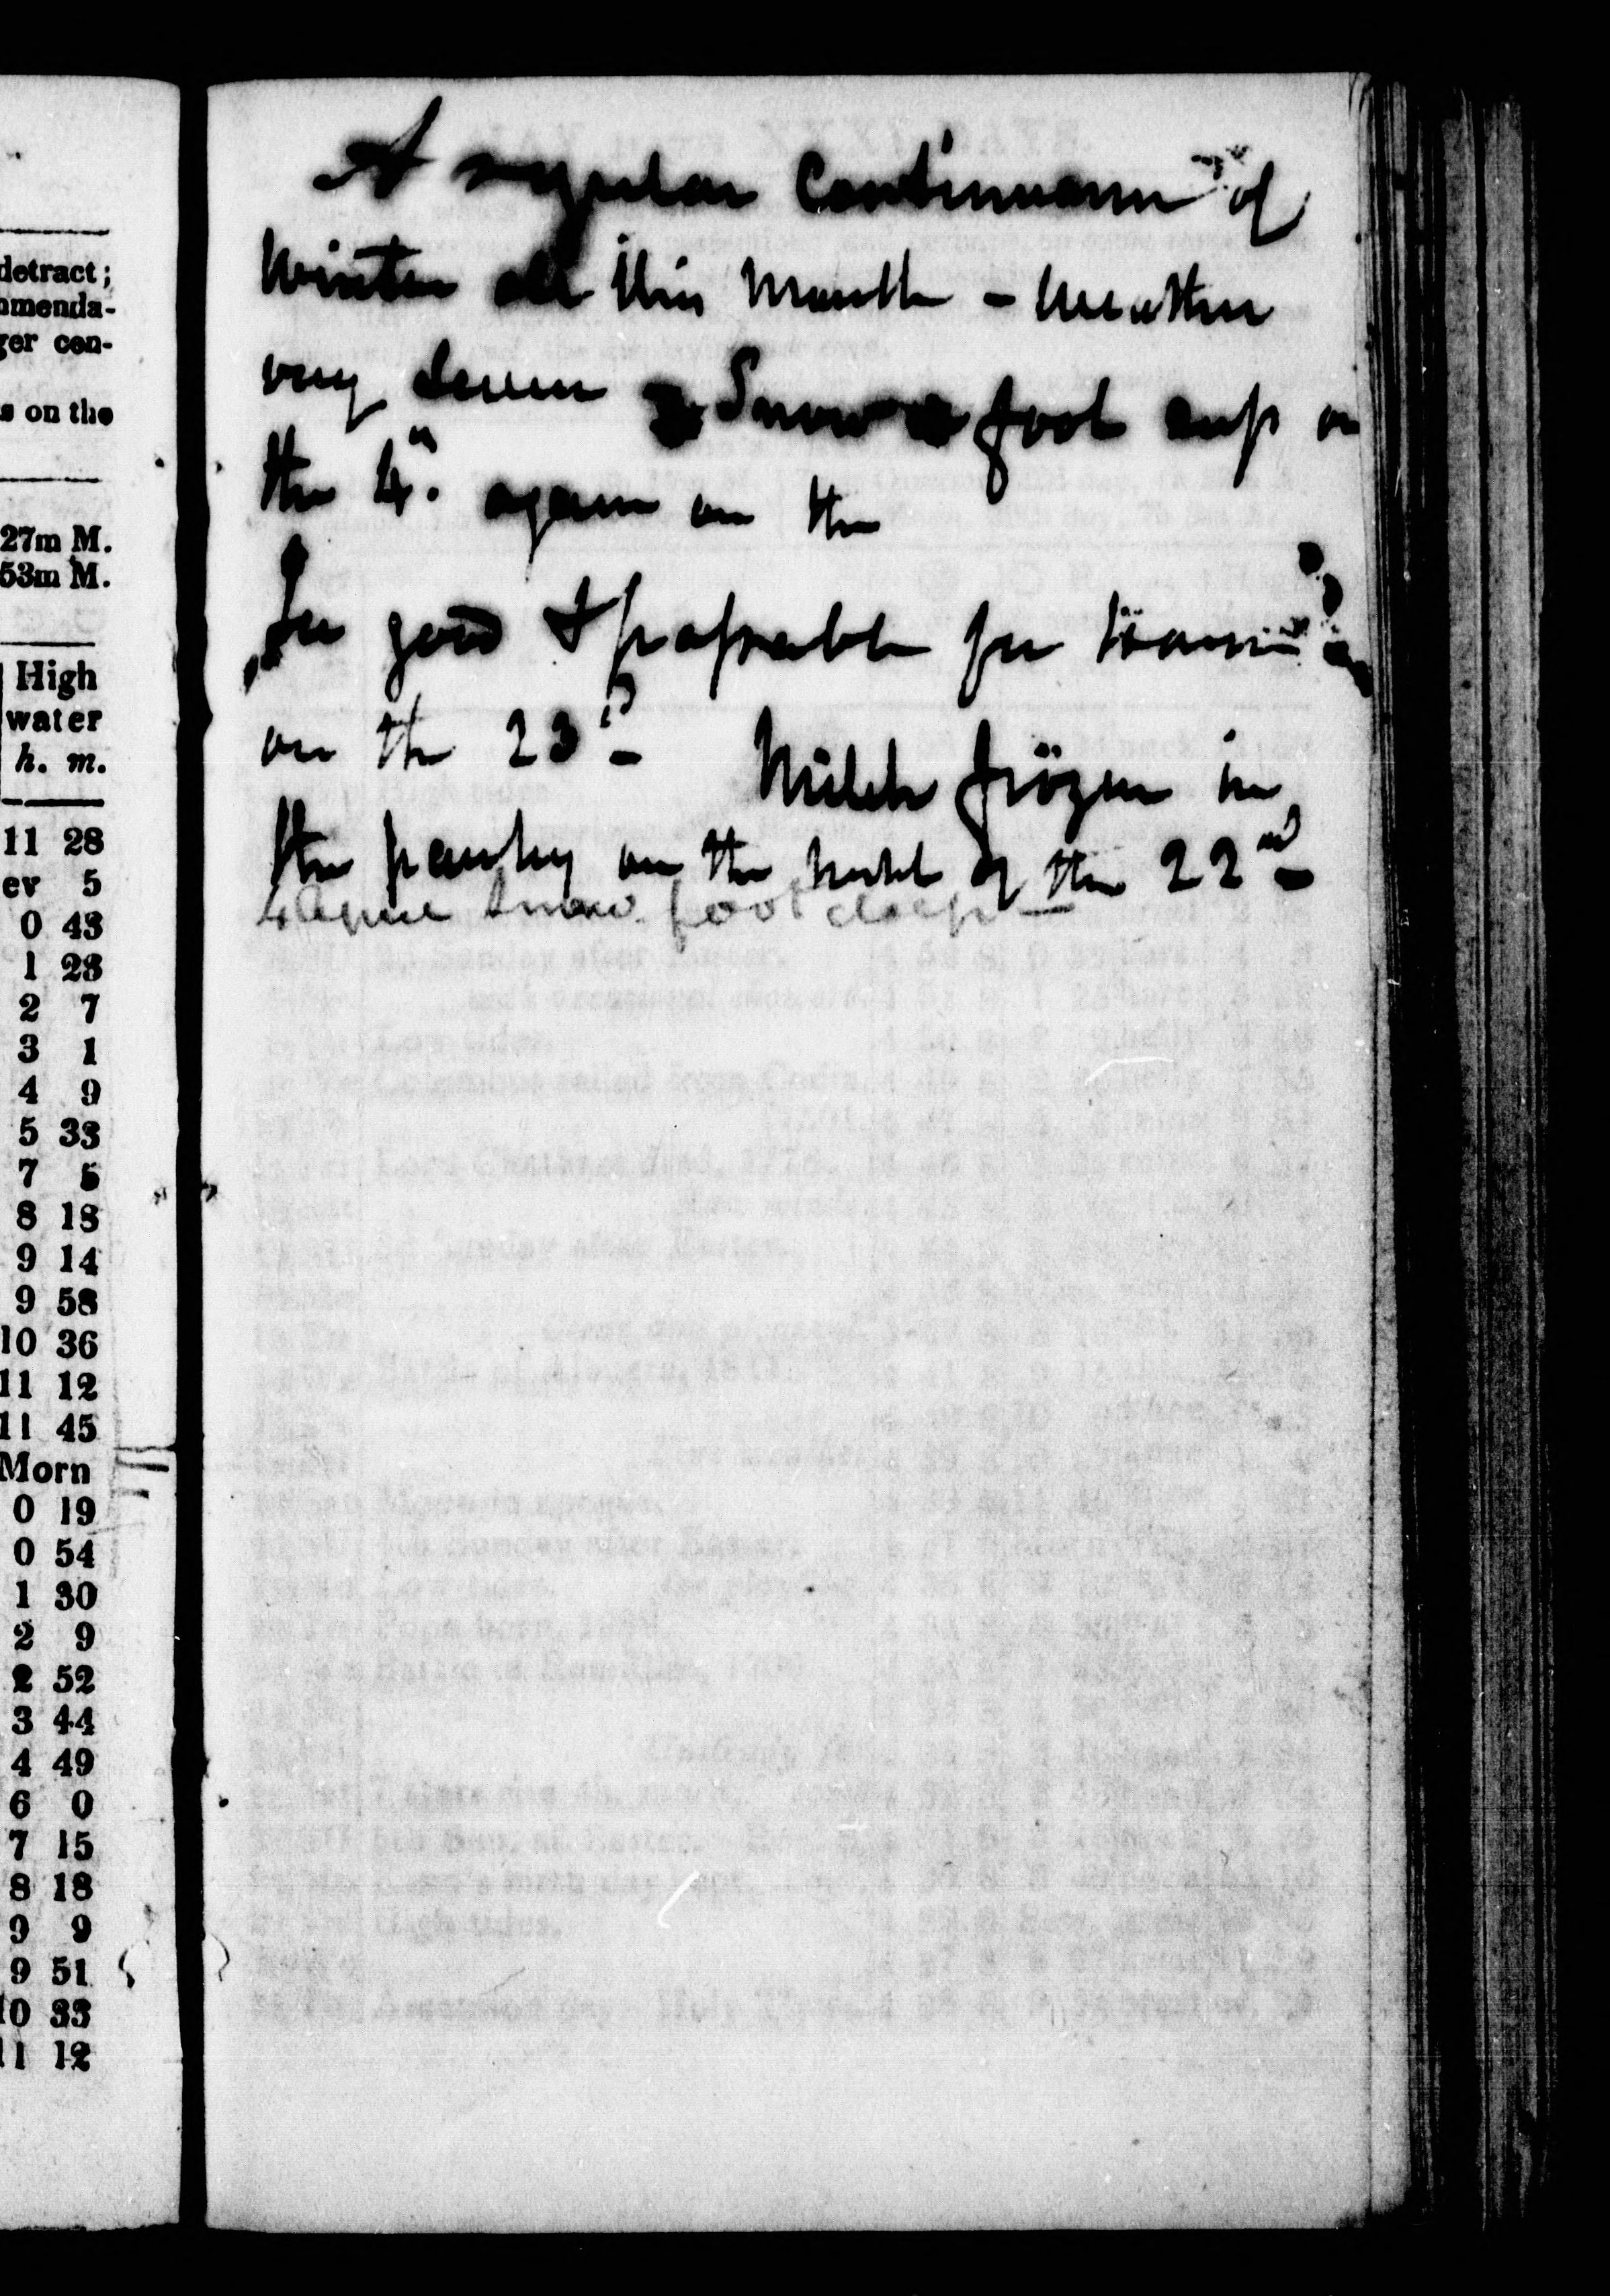 detract;
mmenda-
ger con-
s on the
27m M.
53m M.
High
water
h. m.
11 28
ev 5
0 43
1 23
2 7
3 1
4 9
5 33
7 5
8 18
9 14
9 58
10 36
11 12
11 45
Morn
0 19
0 54
1 30
2 9
2 52
3 44
4 49
6 0
7 15
8 18
9 9
9 51
10 33
11 12
A regular Continuance of
Winter all this Month - Weather
very Severe Snow a foot deep on
the 4th again on the
Ice good & passable for teams
on the 23d - Milk frozen in
the pantry on the night of the 22nd -
4 April Snow foot deep -